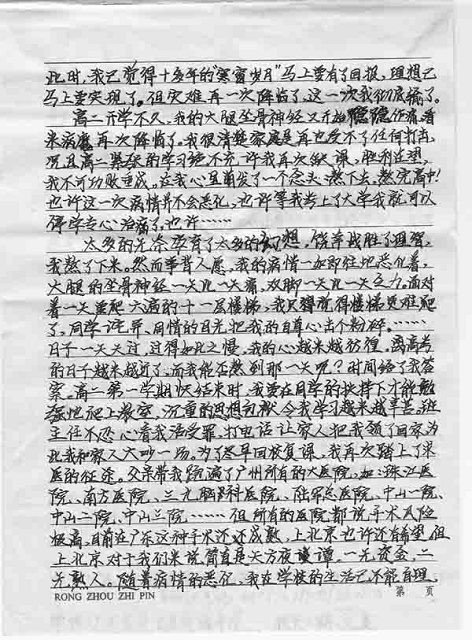 此时,我已觉得十多年的"寒窗岁月"马上要有了回报,理想已
马上要实现了。但灾难再一次降临了,这一次我彻底痛了。
高二开学不久,我的大腿坐骨神经又开始隐隐作痛,看
来病魔再次降临了。我很清楚家庭是再也受不了任何打击,
况且高二紧张的学习绝不允许我再次缺课,胜利在望,
我不可功败垂成。在我心里萌发了一个念头:熬下去,熬完高中!
也许这一次病情并不会恶化,也许等我考上了大学我就可以
休学专心治病了,也许……
太多的无奈孕育了太多的幻想,侥幸战胜了理智,
我熬了下来。然而事背人愿,我的病情一如即往地恶化着,
大腿的坐骨神经一天比一天痛,双脚一天比一天乏力。面对
着一天要爬六遍的十一层楼梯,我只觉得楼梯更难爬
了,同学诧异、同情的目光把我的自尊心击个粉碎。……
日子一天天过,过得如此之慢,我的心越来越彷徨。离高考
的日子越来越近了,而我能否熬到那一天呢?时间给了我答
案。高二第一学期快结束时,我要在同学的扶持下才能勉
强地爬上教室,沉重的思想包袱令我学习越来越辛苦。班
主任不忍心看我活受罪,打电话让家人把我领了回家,为
此我和家人大吵一场。为了尽早回校复课,我再次踏上了求
医的征途。父亲带我跑遍了广州所有的大医院,如:珠江医
院、南方医院、三九脑科医院、陆军总医院、中山一院、
中山二院、中山三院……但所有的医院都说手术风险
极高,目前在广东这种手术还不成熟,上北京也许还有希望。但
上北京对于我们来说简直是天方夜谭。一无资金,二
无熟人。随着病情的恶化,我在学校的生活已不能自理,
RONG ZHOU ZHI PIN
第 页